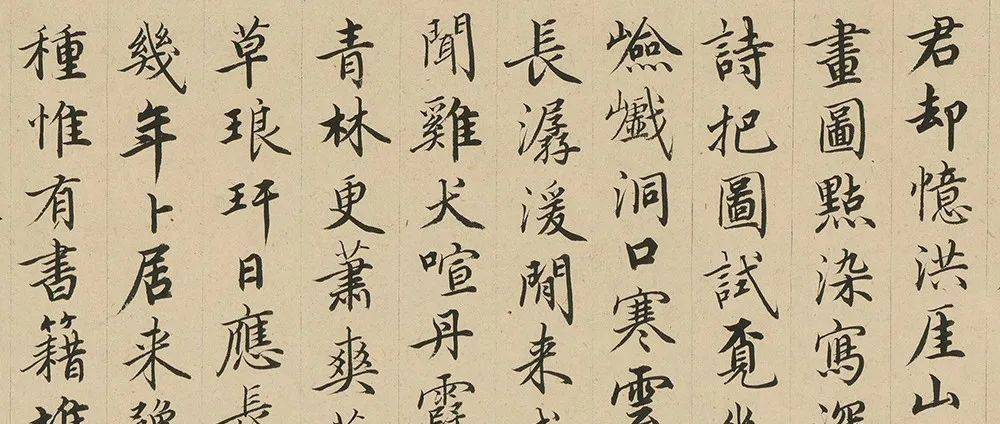 君却憶洪厓山
畫圖點染寫深
詩把圖試覔
嶮巇洞口寒雲
長潺湲閒来
聞雞犬喧丹霞
青林更蕭爽
草琅玕日應長
幾年卜居来
種惟有書籍堆